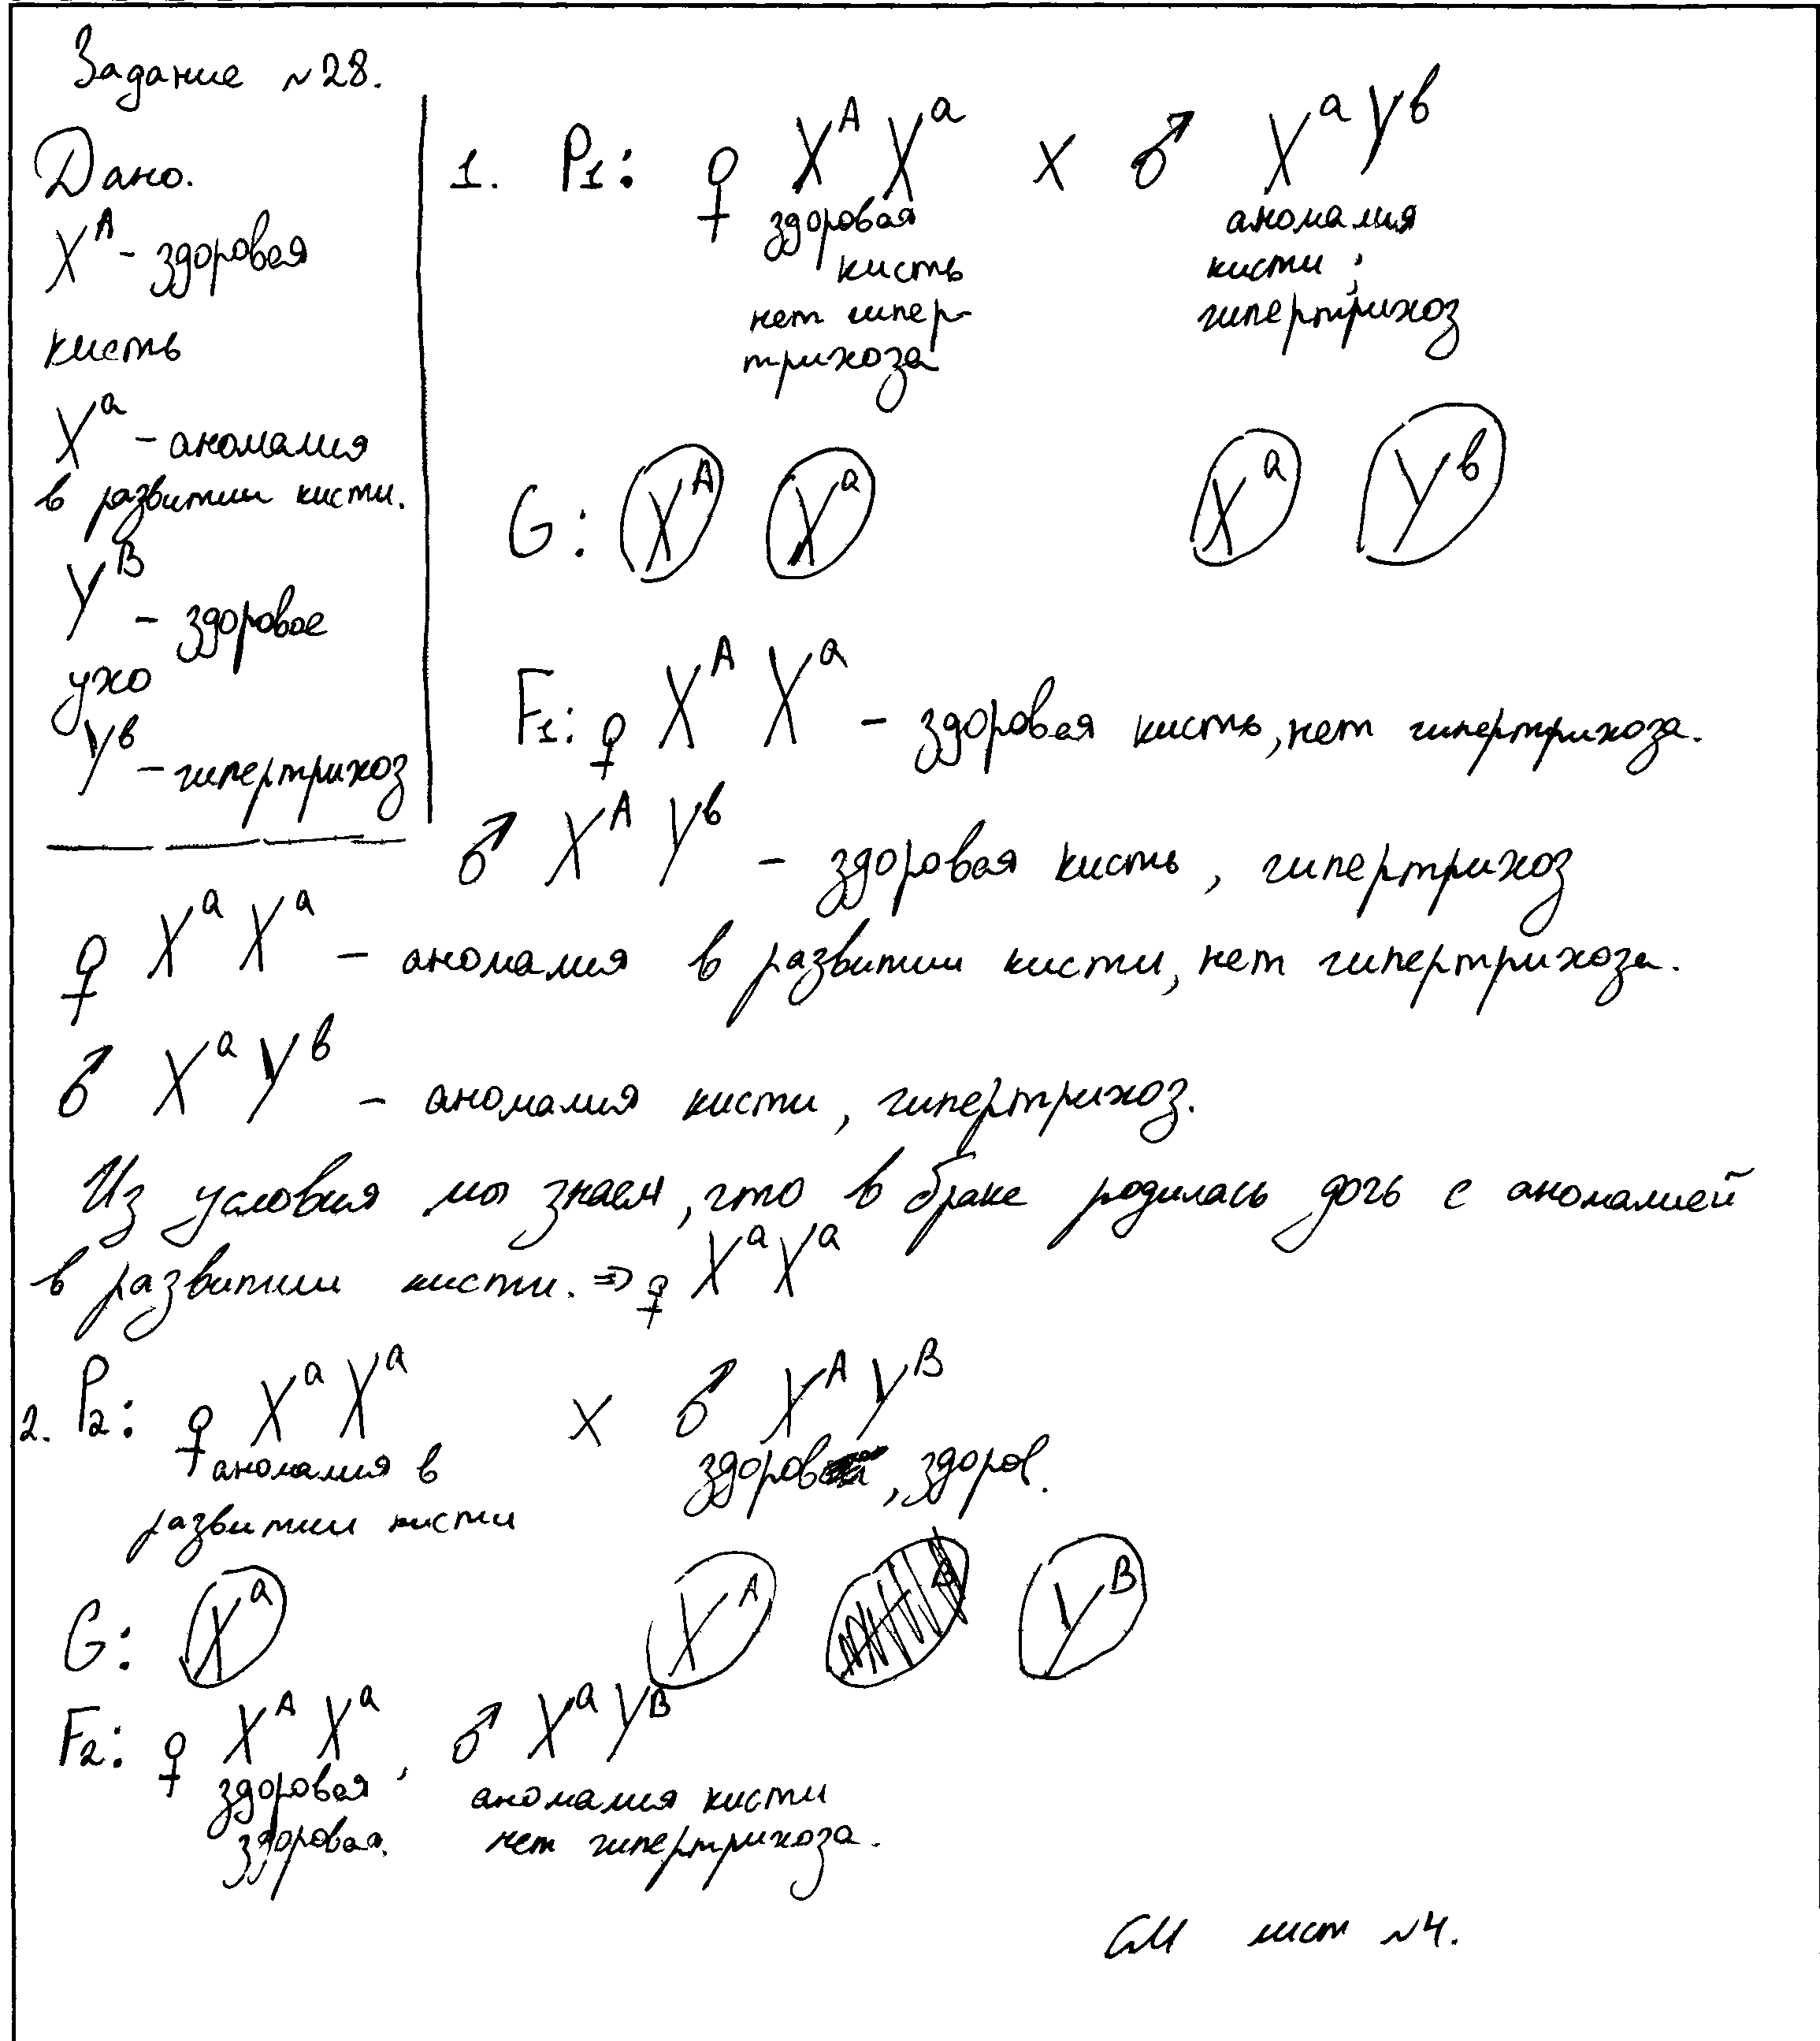 Задание №28.
Дано.
X^A - здоровая
кисть
X^a - аномалия
в развитии кисти.
Y^B - здоровое
ухо
Y^b - гипертрихоз
1. P1: ♀ X^A X^a × ♂ X^a Y^b
здоровая
кисть
нет гипер-
трихоза
аномалия
кисти;
гипертрихоз
G: X^A X^a X^a Y^b
F1: ♀ X^A X^a - здоровая кисть, нет гипертрихоза.
♂ X^A Y^b - здоровая кисть, гипертрихоз
♀ X^a X^a - аномалия в развитии кисти, нет гипертрихоза.
♂ X^a Y^b - аномалия кисти, гипертрихоз.
Из условия мы знаем, что в браке родилась дочь с аномалией
в развитии кисти. ⇒ ♀ X^a X^a
2. P2: ♀ X^a X^a × ♂ X^A Y^B
аномалия в
развитии кисти
здоров, здоров.
G: X^a X^A Y^B
F2: ♀ X^A X^a, ♂ X^a Y^B
здоровая
здоровая.
аномалия кисти
нет гипертрихоза.
СМ лист №4.